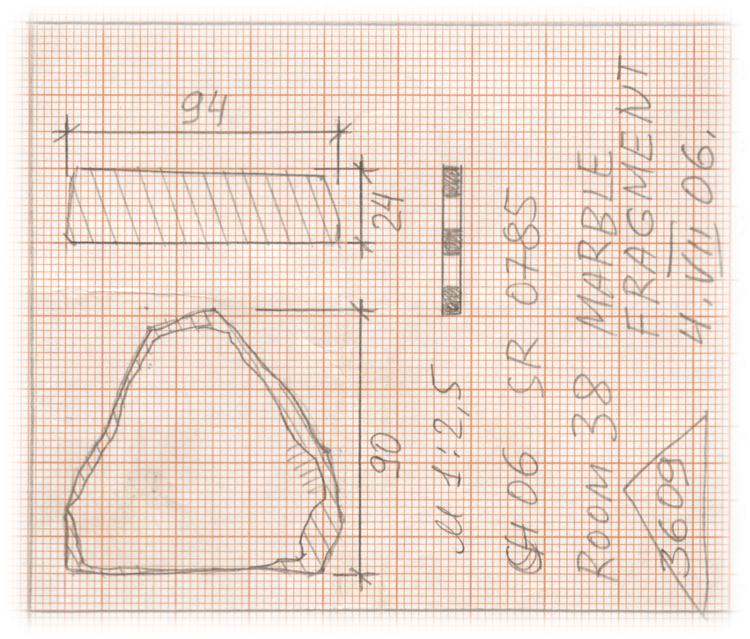 94
24
90
М 1:2,5
CH 06 SR 0785
ROOM 38 MARBLE
FRAGMENT
4.VII 06.
3609